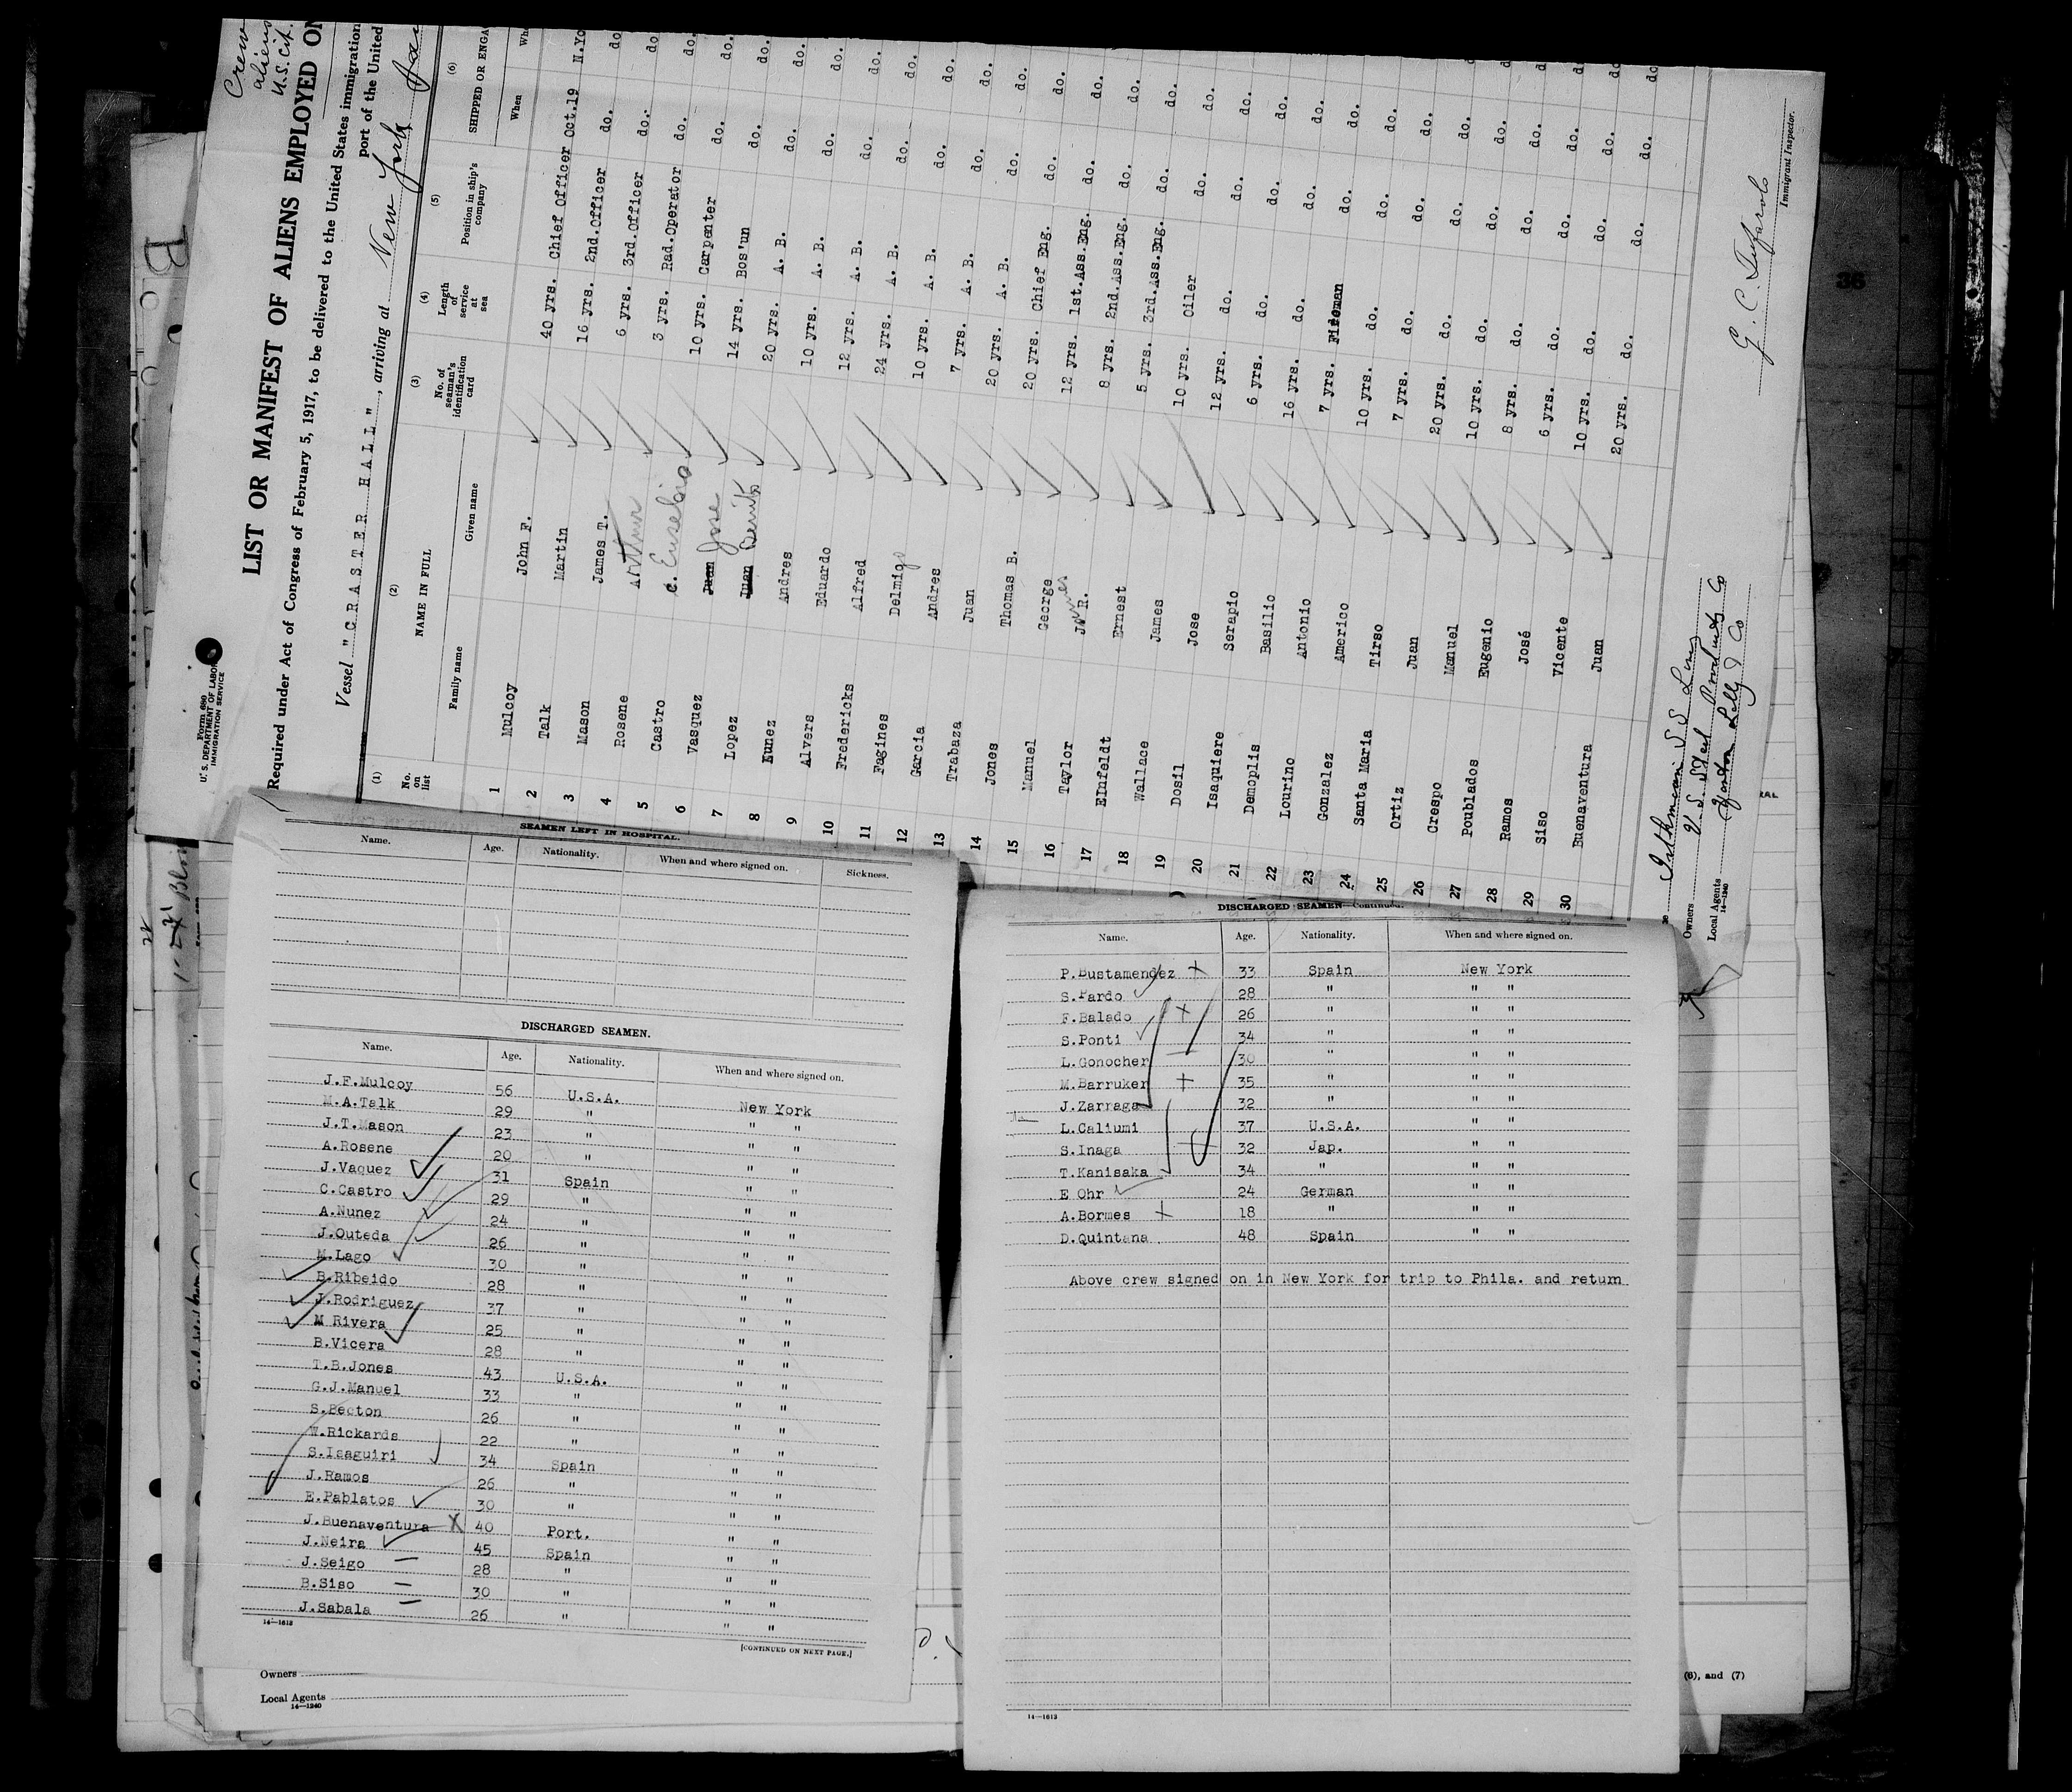 Crew
aliens
U.S. Cit.
Form 680
U. S. DEPARTMENT OF LABOR
IMMIGRATION SERVICE
LIST OR MANIFEST OF ALIENS EMPLOYED ON
Required under Act of Congress of February 5, 1917, to be delivered to the United States immigration
port of the United
Vessel "CRASTER HALL", arriving at New York
(1) (2) (3) (4) (5) (6)
No. on list NAME IN FULL No. of seaman's identification card Length of service at sea Position in ship's company SHIPPED OR ENGA
Family name Given name When Wh
1 Mulcoy John F. 40 yrs. Chief Officer Oct.19 N.Yo
2 Talk Martin 16 yrs. 2nd.Officer do. do
3 Mason James T. 6 yrs. 3rd.Officer do. do
4 Rosene Arthur 3 yrs. Rad.Operator do. do.
5 Castro C. Eusebio 10 yrs. Carpenter do. do.
6 Vasquez Juan Jose 14 yrs. Bos'un do. do.
7 Lopez Juan Benito 20 yrs. A. B. do. do.
8 Nunez Andres 10 yrs. A. B. do. do.
9 Alvers Eduardo 12 yrs. A. B. do. do.
10 Fredericks Alfred 24 yrs. A. B. do. do.
11 Fagines Delmigo 10 yrs. A. B. do. do.
12 Garcia Andres 7 yrs. A. B. do. do.
13 Trabaza Juan 20 yrs. A. B. do. do.
14 Jones Thomas B. 20 yrs. Chief Eng. do. do.
15 Manuel George 12 yrs. 1st.Ass.Eng. do. do.
16 Taylor James R. 8 yrs. 2nd.Ass.Eng. do. do.
17 Elnfeldt Ernest 5 yrs. 3rd.Ass.Eng. do. do.
18 Wallace James 10 yrs. Oiler do. do.
19 Dosil Jose 12 yrs. do. do. do.
20 Isaquiere Serapio 6 yrs. do. do. do.
21 Demoplis Basilio 16 yrs. do. do. do.
22 Lourino Antonio 7 yrs. Fireman do. do.
23 Gonzalez Americo 10 yrs. do. do. do.
24 Santa Maria Tirso 7 yrs. do. do. do.
25 Ortiz Juan 20 yrs. do. do. do.
26 Crespo Manuel 10 yrs. do. do. do.
27 Poublados Eugenio 8 yrs. do. do. do.
28 Ramos José 6 yrs. do. do. do.
29 Siso Vicente 10 yrs. do. do. do.
30 Buenaventura Juan 20 yrs. do. do. do.
Isthmian S S Lines
Owners U. S. Steel Products Co
Local Agents Norton Lilly & Co
14—1240
Immigrant Inspector.
SEAMEN LEFT IN HOSPITAL.
Name. Age. Nationality. When and where signed on. Sickness.
DISCHARGED SEAMEN.
Name. Age. Nationality. When and where signed on.
J.F.Mulcoy 56 U.S.A. New York
M.A.Talk 29 " " "
J.T.Mason 23 " " "
A.Rosene 20 " " "
J.Vaquez 31 Spain " "
C.Castro 29 " " "
A.Nunez 24 " " "
J.Outeda 26 " " "
M.Lago 30 " " "
B.Ribeido 28 " " "
J.Rodriguez 37 " " "
M Rivera 25 " " "
B.Vicera 28 " " "
T.B.Jones 43 U.S.A. " "
G.J.Manuel 33 " " "
S.Becton 26 " " "
W.Rickards 22 " " "
S.Isaguiri 34 Spain " "
J.Ramos 26 " " "
E.Pablatos 30 " " "
J.Buenaventura X 40 Port. " "
J.Neira 45 Spain " "
J.Seigo 28 " " "
B.Siso 30 " " "
J.Sabala 26 " " "
14—1613
[CONTINUED ON NEXT PAGE.]
Owners
Local Agents
14—1240
DISCHARGED SEAMEN—Continued.
Name. Age. Nationality. When and where signed on.
P.Bustamendez 33 Spain New York
S.Pardo 28 " " "
F.Balado 26 " " "
S.Ponti 34 " " "
L.Gonocher 30 " " "
M.Barruker 35 " " "
J.Zarraga 32 " " "
L.Caliumi 37 U.S.A. " "
S.Inaga 32 Jap. " "
T.Kanisaka 34 " " "
E Ohr 24 German " "
A.Bormes 18 " " "
D.Quintana 48 Spain " "
Above crew signed on in New York for trip to Phila. and return
14—1613
(6), and (7)
36